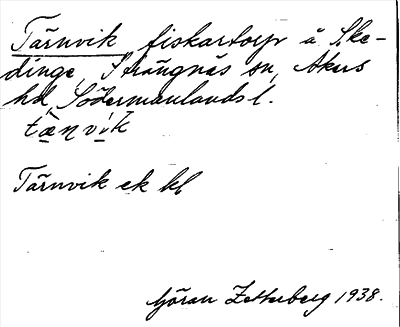 Tärnvik fiskartorp å Ske-
dinge, Strängnäs sn, Åkers
hd, Södermanlands l.
tæ̀ṇvik
Tärnvik ek kbl
Göran Zetterberg 1938.